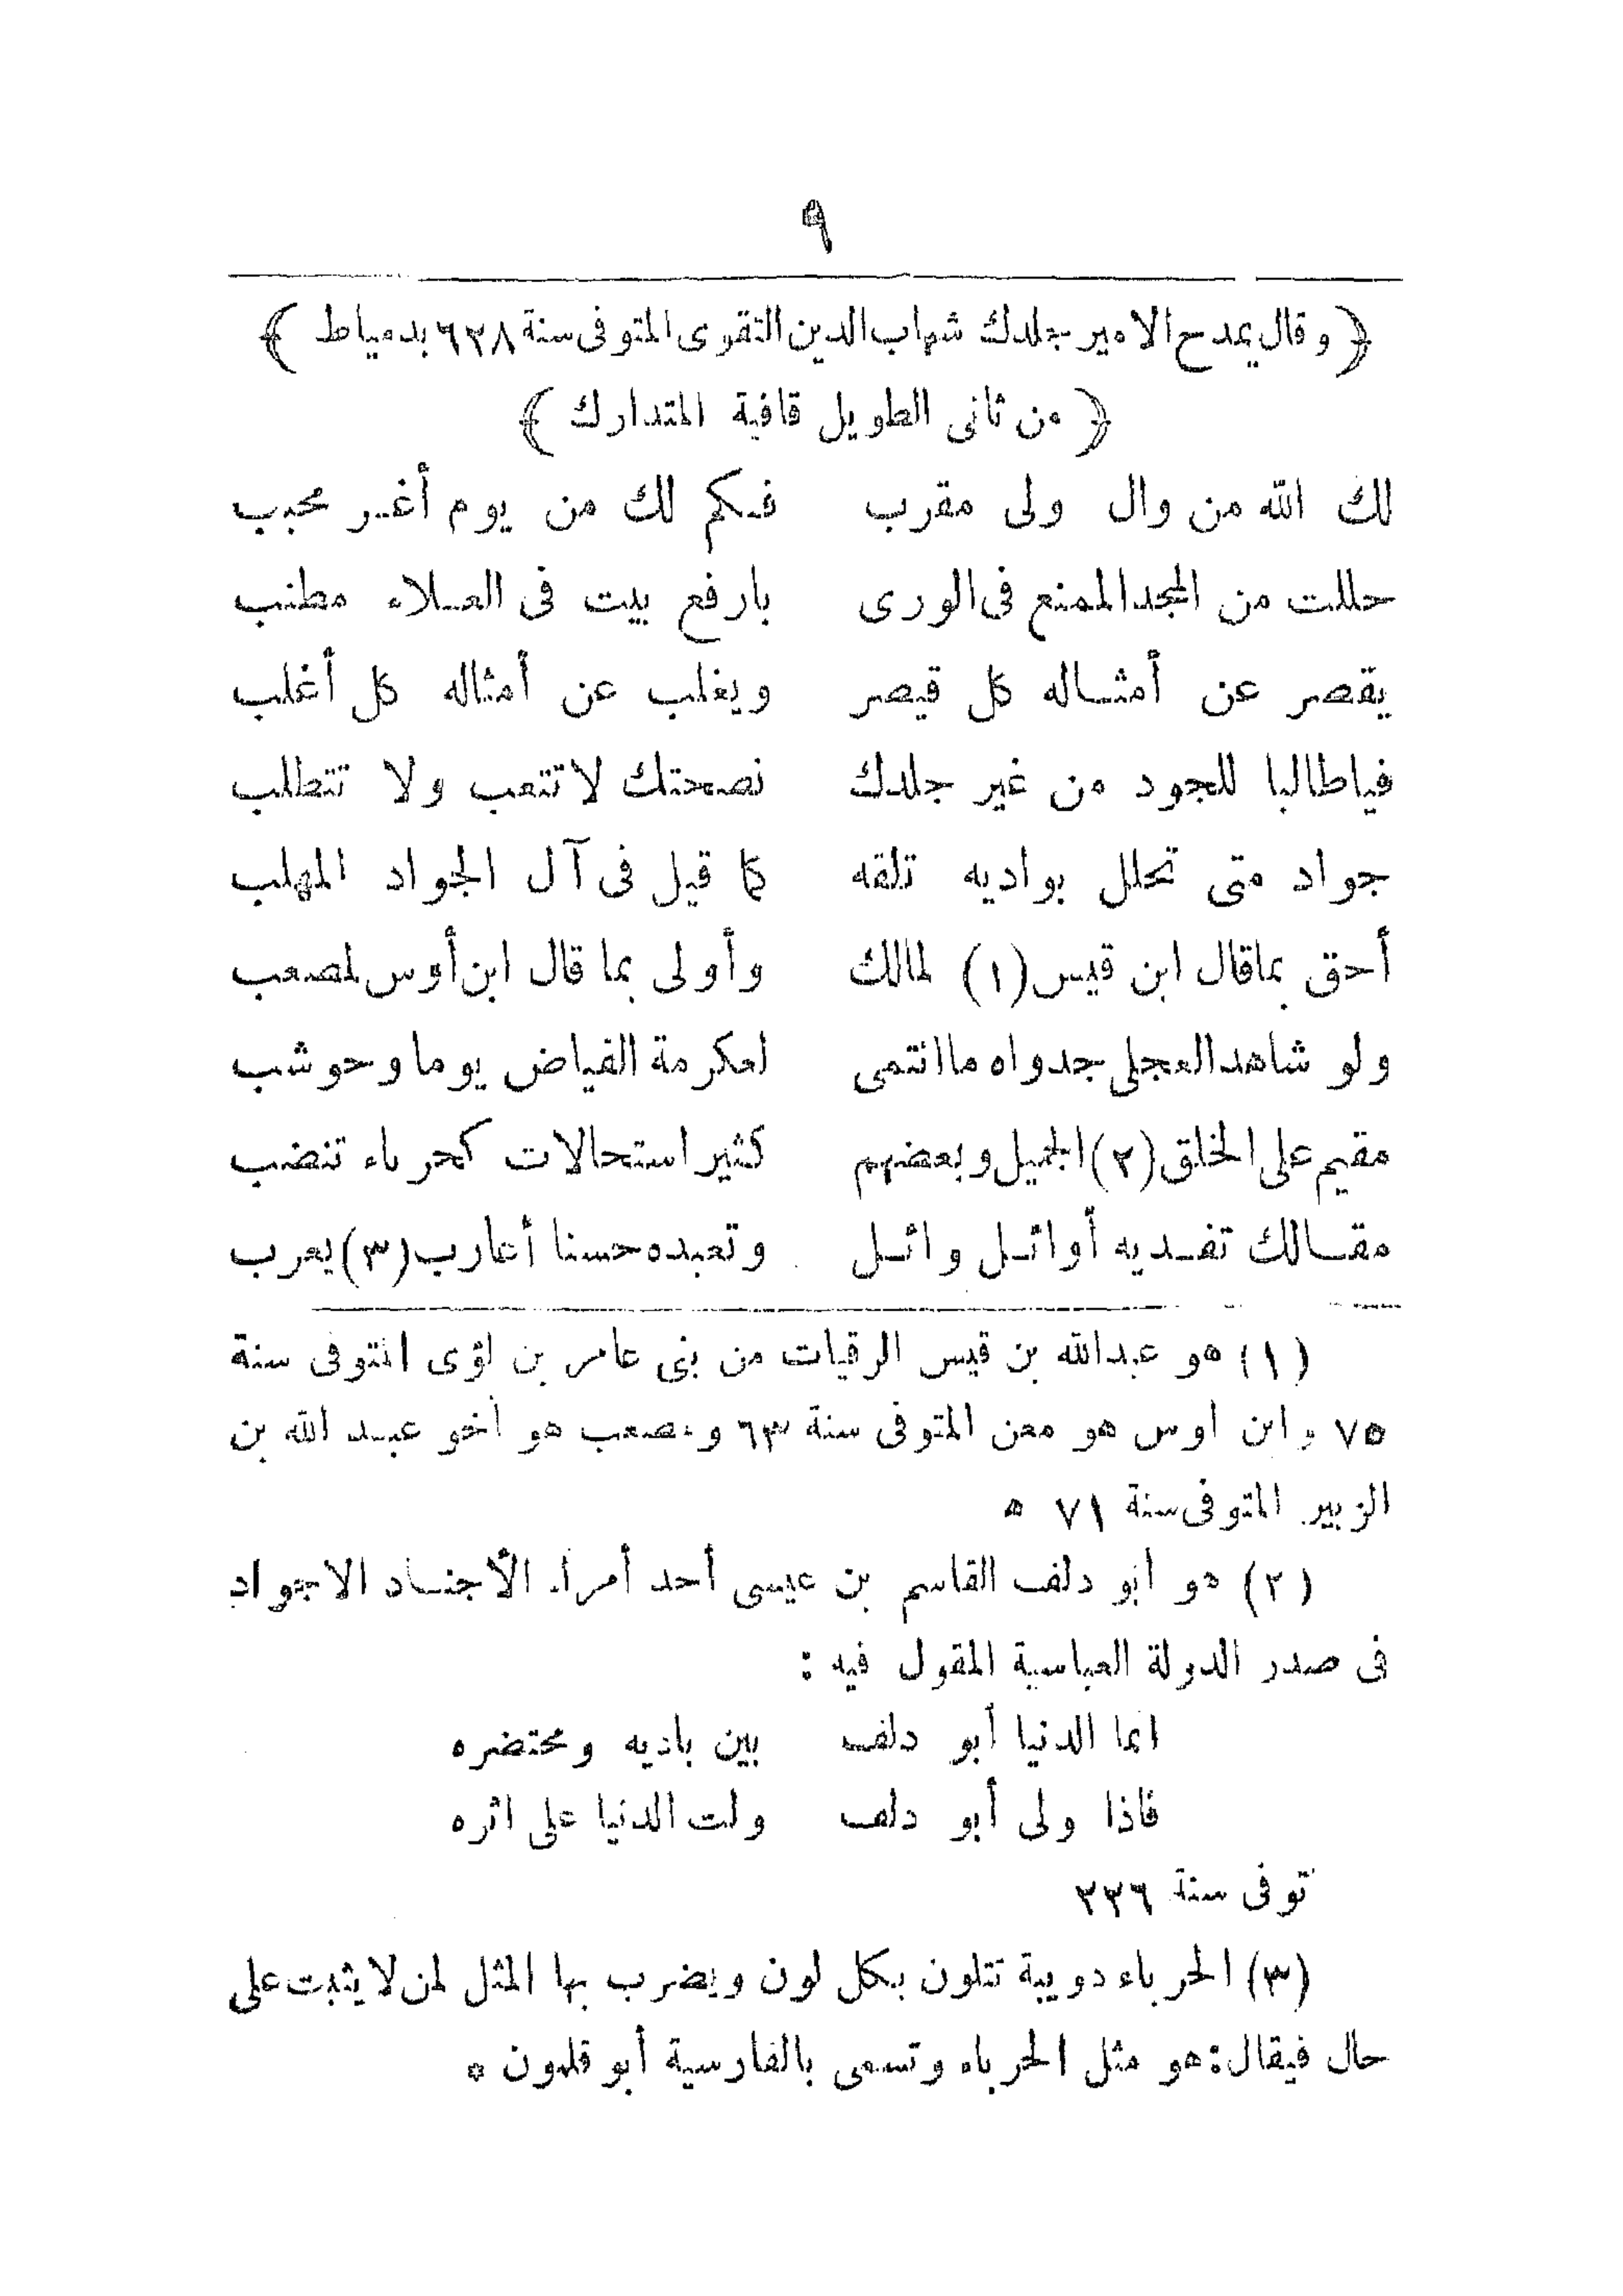 ٩
﴿ وقال يمدح الامير جلدك شهاب الدين التقوى المتوفى سنة ٦٢٨ بدمياط ﴾
﴿ من ثانى الطويل قافية المتدارك ﴾
لك الله من وال ولى مقرب فكم لك من يوم أغر محبب
حللت من المجد الممنع فى الورى بارفع بيت فى العلاء مطنب
يقصر عن أمثاله كل قيصر ويغلب عن أمثاله كل أغلب
فياطالبا للجود من غير جلدك نصحتك لا تتعب ولا تتطلب
جواد متى تحلل بواديه تلقه كما قيل فى آل الجواد المهلب
أحق بماقال ابن قيس (١) لمالك وأولى بما قال ابن أوس لمصعب
ولو شاهد العجلى جدواه ما انتمى لعكرمة الفياض يوما وحوشب
مقيم على الخلق (٢) الجميل وبعضهم كثير استحالات كحرباء تنضب
مقالك تفديه أوائل وائل وتعبده حسنا أعارب (٣) يعرب
(١) هو عبدالله بن قيس الرقيات من بنى عامر بن لؤى المتوفى سنة
٧٥ وابن اوس هو معن المتوفى سنة ٦٣ ومصعب هو أخو عبد الله بن
الزبير المتوفى سنة ٧١ ه
(٢) هو أبو دلف القاسم بن عيسى أحد أمراء الأجناد الاجواد
فى صدر الدولة العباسية المقول فيه :
انما الدنيا أبو دلف بين باديه ومحتضره
فاذا ولى أبو دلف ولت الدنيا على اثره
توفى سنة ٢٢٦
(٣) الحرباء دويبة تتلون بكل لون ويضرب بها المثل لمن لا يثبت على
حال فيقال : هو مثل الحرباء وتسمى بالفارسية أبو قلمون ه